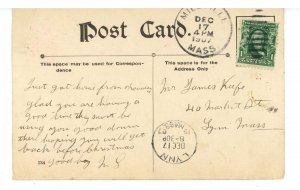 Post Card
DEC
17
4 PM
1907
MASS
This space may be used for Correspon-
dence
This space is for the
Address Only
Just got home from
glad you are having a
good time they must be
using you good down
there hoping you will get
back before Christmas
good by
Mr James Keefe
40 Market St
Lynn Mass
LYNN
DEC 17
8-30P
MASS